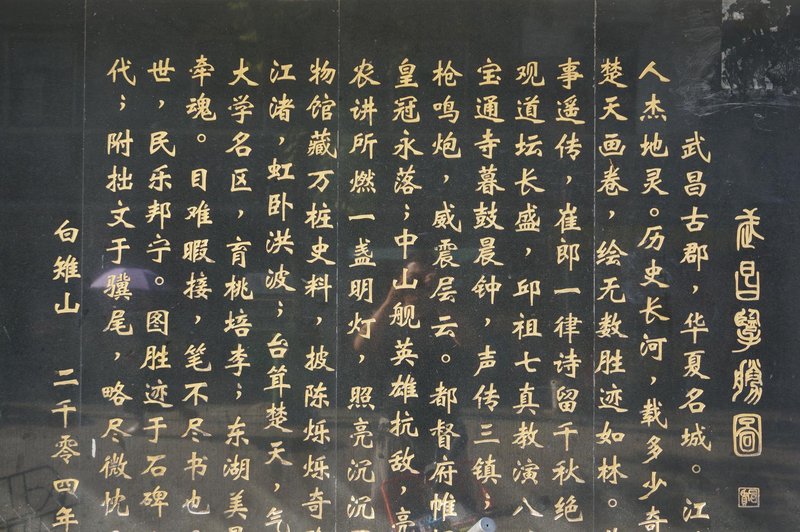 武昌揽胜图
武昌古郡，华夏名城。江
人杰地灵。历史长河，载多少奇
楚天画卷，绘无数胜迹如林。
事遥传，崔郎一律诗留千秋绝
观道坛长盛，邱祖七真教演八
宝通寺暮鼓晨钟，声传三镇；
枪鸣炮，威震层云。都督府帷
皇冠永落；中山舰英雄抗敌，亮
农讲所燃一盏明灯，照亮沉沉
物馆藏万桩史料，披陈烁烁奇
江渚，虹卧洪波；台耸楚天，气
大学名区，育桃培李；东湖美
牵魂。目难暇接，笔不尽书也
世，民乐邦宁。图胜迹于石碑
代；附拙文于骥尾，略尽微忱
白雉山 二千零四年